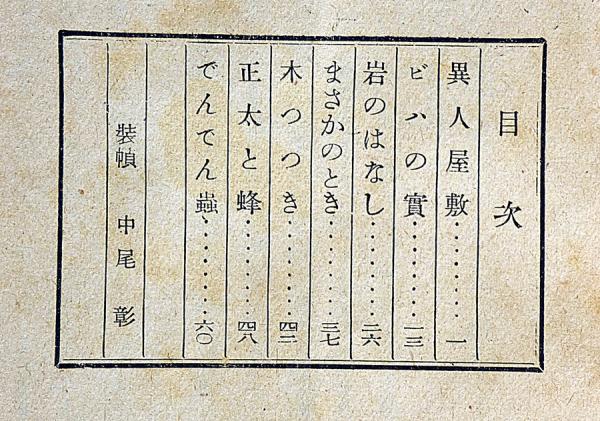 目次
異人屋敷………一
ビハの實………一三
岩のはなし………二六
まさかのとき………三七
木つつき………四二
正太と蜂………四八
でんでん蟲………六〇
裝幀 中尾彰